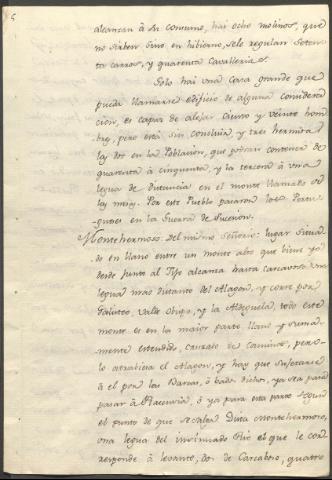 alcanzan â su consumo, hai ocho molinos, que
no sirben sino en hibierno, se le regulan Seten-
ta carros, y quarenta Cavallerias.
Solo hai una Casa grande que
pueda llamarse edificio de alguna considera
cion, es capaz de alojar Ciento y veinte hom
bres, pero està sin concluir, y tres hermitas
las dos en la Poblacion, que podran contener de
quarenta à cinquenta, y la tercera à una
legua de distancia en el monte llamado de
Por este Pueblo pasaron los Portu-
gueses en la Guerra de Sucesion.
Montehermoso del mismo Señorio: lugar situa
do en llano entre un monte alto que biene ya
desde junto al Tajo alcanza hasta una
legua mas distante del Alagon, y corre por
Galisteo, Valde obispo, y la Aldeguela, todo este
monte es en la maior parte llano y suma-
mente estendido, cruzado de caminos, pero
lo atrabiesa el Alagon, y hay que sujetarse
à el por las Barcas, ò bados dichos, ya sea para
pasar â Plasencia, ò ya para esta parte segun
el punto de que se salga Dista Montehermoso,
una legua del insinuado Rio el que le corr
responde à levante, dos de Carcaboso, quatro